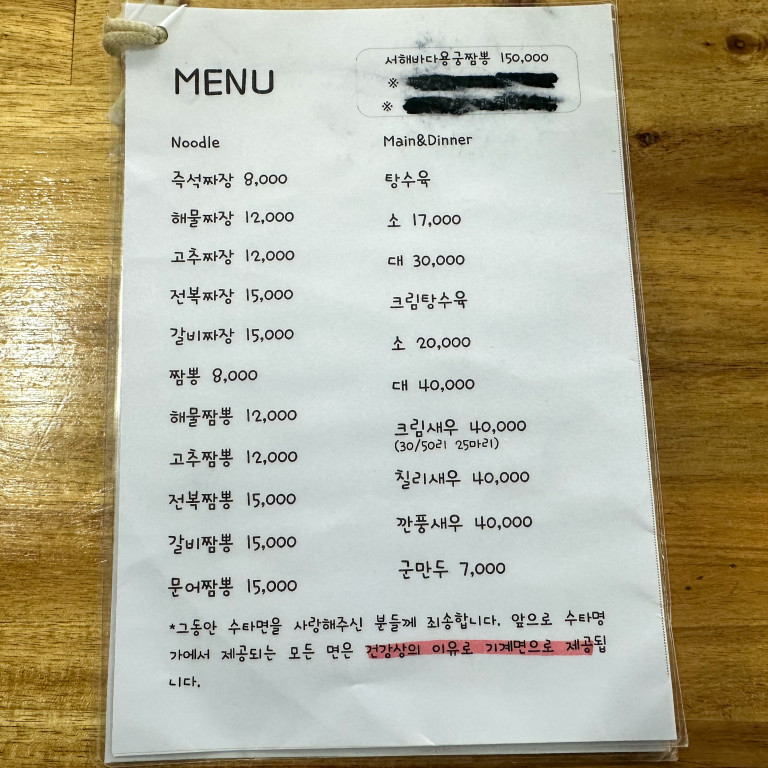 MENU
서해바다용궁짬뽕 150,000
※
※
Noodle
즉석짜장 8,000
해물짜장 12,000
고추짜장 12,000
전복짜장 15,000
갈비짜장 15,000
짬뽕 8,000
해물짬뽕 12,000
고추짬뽕 12,000
전복짬뽕 15,000
갈비짬뽕 15,000
문어짬뽕 15,000
Main&Dinner
탕수육
소 17,000
대 30,000
크림탕수육
소 20,000
대 40,000
크림새우 40,000
(30/50리 25마리)
칠리새우 40,000
깐풍새우 40,000
군만두 7,000
*그동안 수타면을 사랑해주신 분들께 죄송합니다. 앞으로 수타명
가에서 제공되는 모든 면은 건강상의 이유로 기계면으로 제공됩
니다.